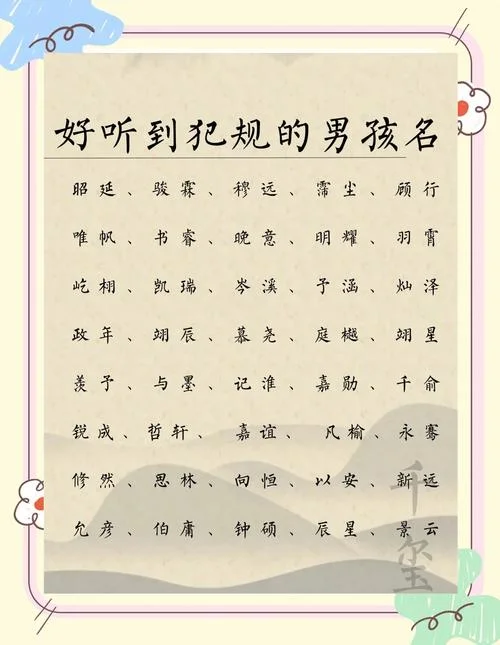 好听到犯规的男孩名
昭延、骏霖、穆远、霈尘、顾行
唯帆、书睿、晚意、明耀、羽霄
屹栩、凯瑞、岑溪、予涵、灿泽
政年、翊辰、慕尧、庭樾、翊星
羡予、与墨、记淮、嘉勋、千俞
锐成、哲轩、嘉谊、凡榆、永骞
修然、思林、向恒、以安、新远
允彦、伯庸、钟硕、辰星、景云
千玺